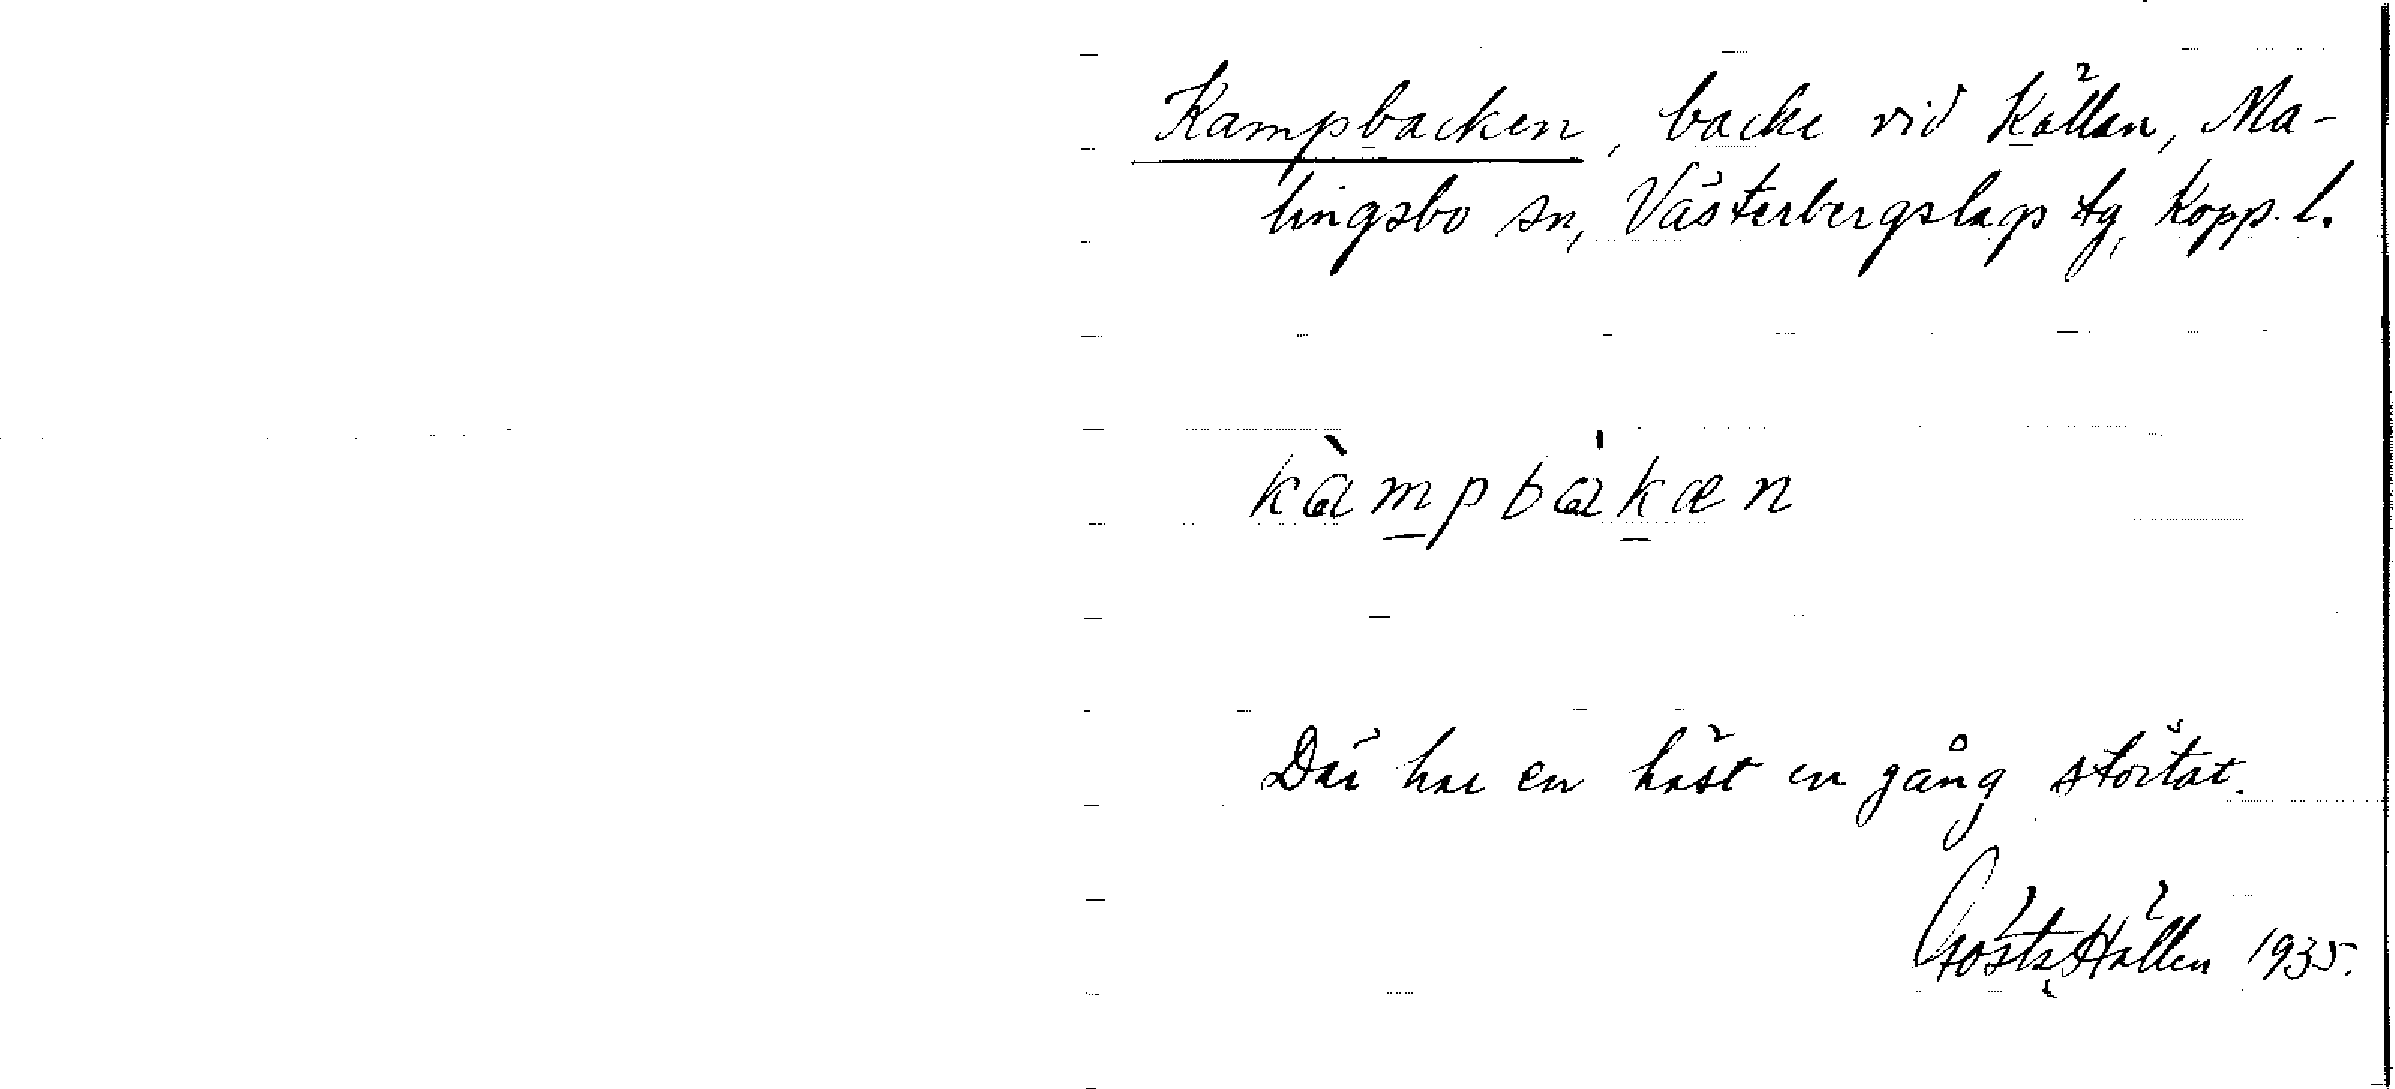 Kampbacken, backe vid Källan, Ma-
lingsbo sn, Västerbergslags tg, Kopp. l.
kàmpbàkæn
Där har en häst en gång störtat.
Gösta Hällen 1935.